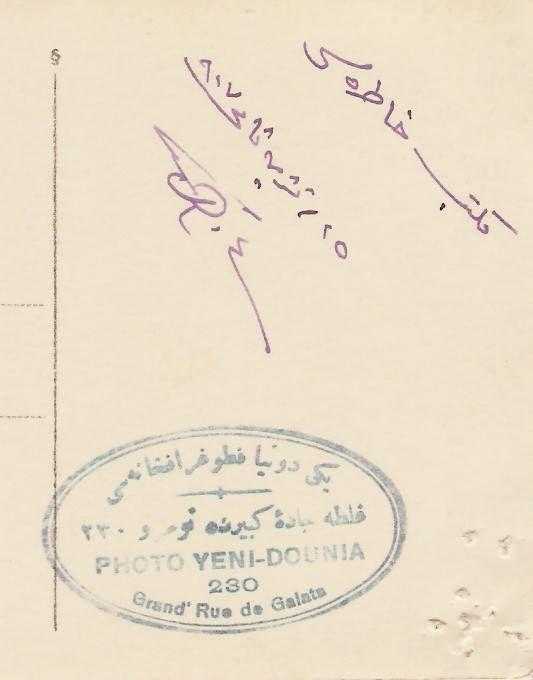 مكتب خاطره‌سى
ثانى
یكی دونیا فطوغرافخانه‌سی
غلطه جادهٔ كبیرنده نومرو ٢٣٠
PHOTO YENI-DOUNIA
230
Grand' Rue de Galata